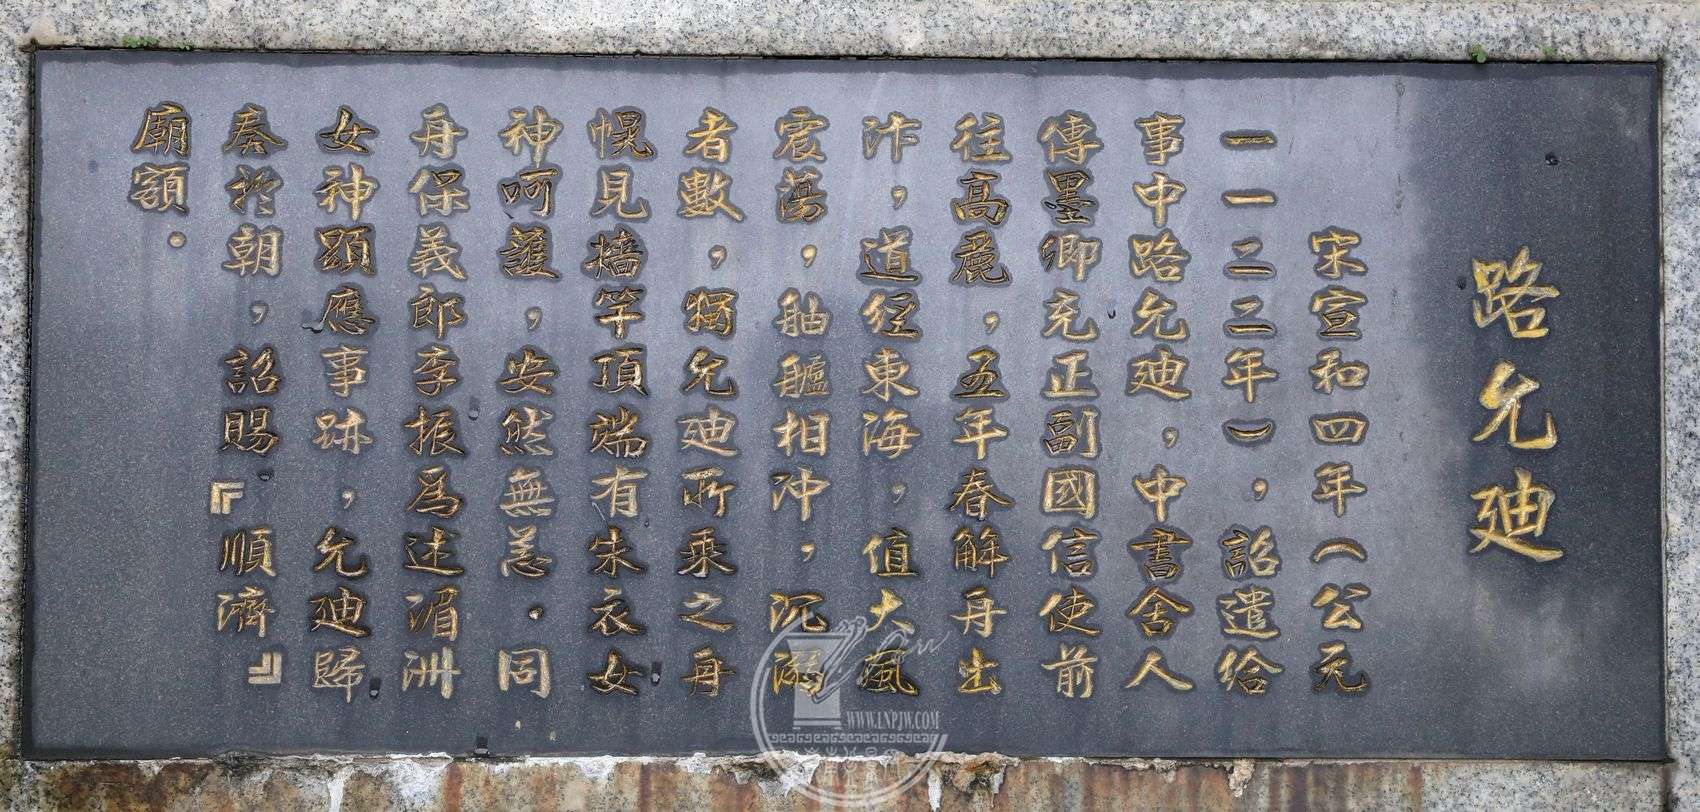 路允廸
宋宣和四年(公元
一一二二年),詔遣給
事中路允廸,中書舍人
傳墨卿充正副國信使前
往高麗,五年春解舟出
汴,道經東海,值大風
震蕩,舳艫相沖,沉溺
者數,獨允廸所乘之舟
幌見牆竿頂端有朱衣女
神呵護,安然無恙。同
舟保義郎李振爲述湄洲
女神顕應事跡,允廸歸
奏於朝,詔賜『順濟』
廟額。
WWW.LNPJW.COM